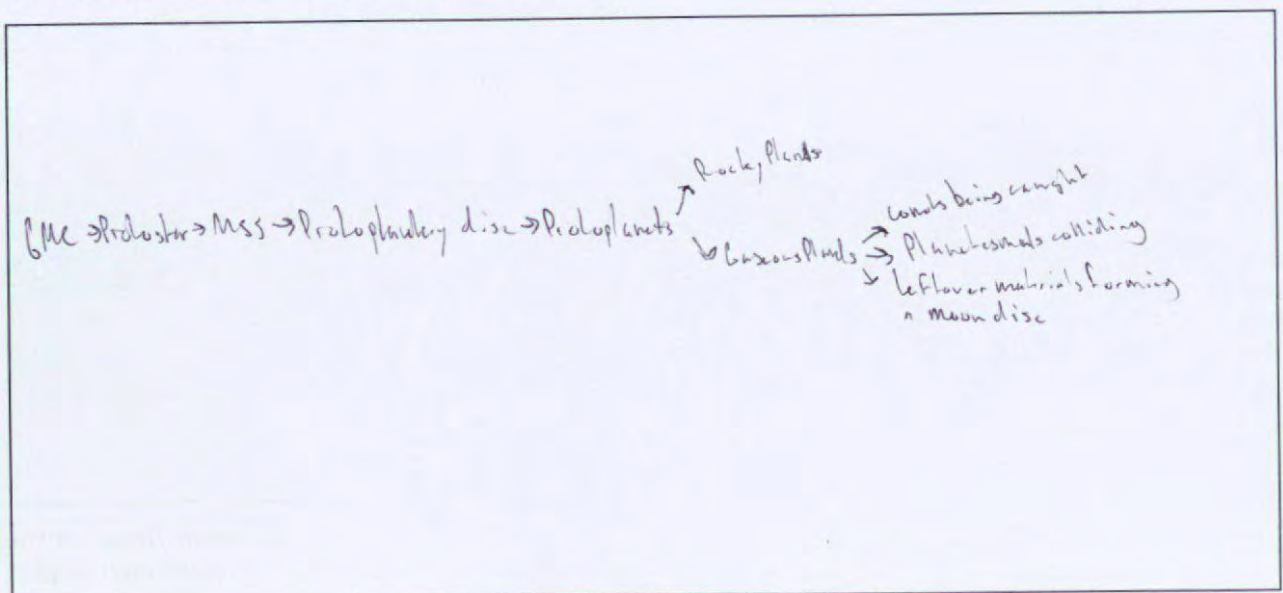 GMC → Protostar → MSS → Protoplanetary disc → Protoplanets
Rocky Planets
Gaseous Planets
comets being caught
Planetesmals colliding
leftover materials forming
a moon disc